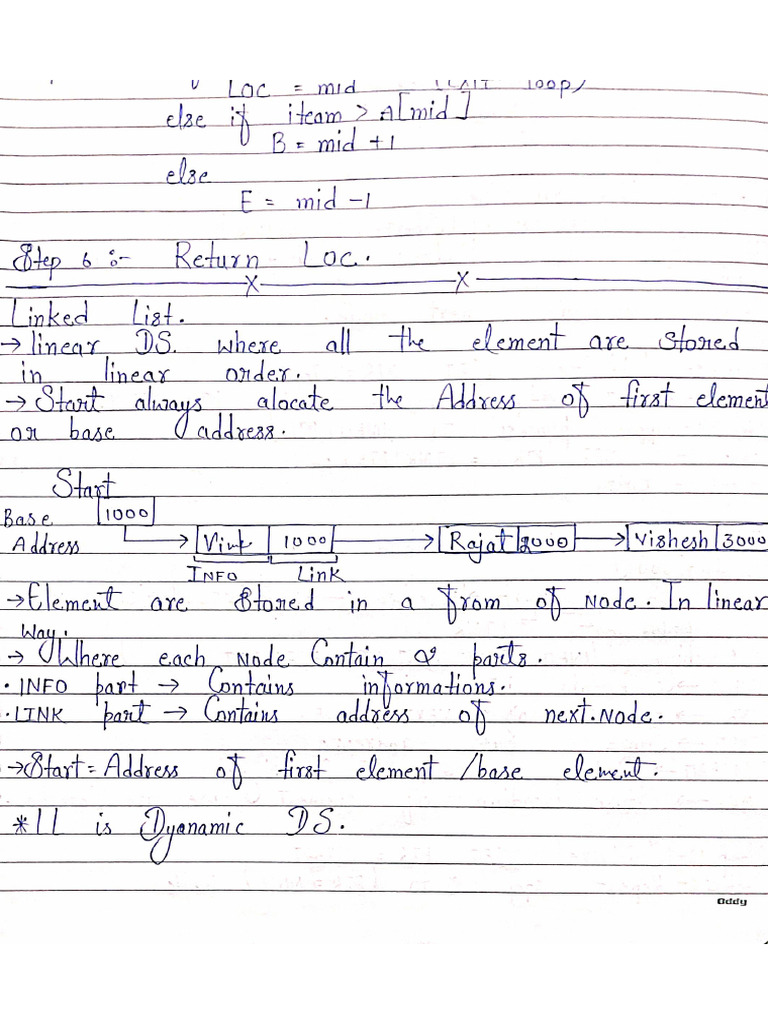 LOC = mid (EXIT loop)
else if iteam > A[mid]
B = mid +1
else
E = mid -1
Step 6 :- Return Loc.
x x
Linked List.
→ linear DS. where all the element are stored
in linear order.
→ Start always alocate the Address of first element
or base address.
Start
1000
Base
Address → 1000 → Rajat 2000 → Vishesh 3000
INFO Link
→ Element are Stored in a from of Node. In linear
Way.
→ Where each Node Contain 2 parts.
• INFO part → Contains informations.
• LINK part → Contains address of next.Node.
→ Start = Address of first element /base element.
* LL is Dyanamic DS.
Oddy